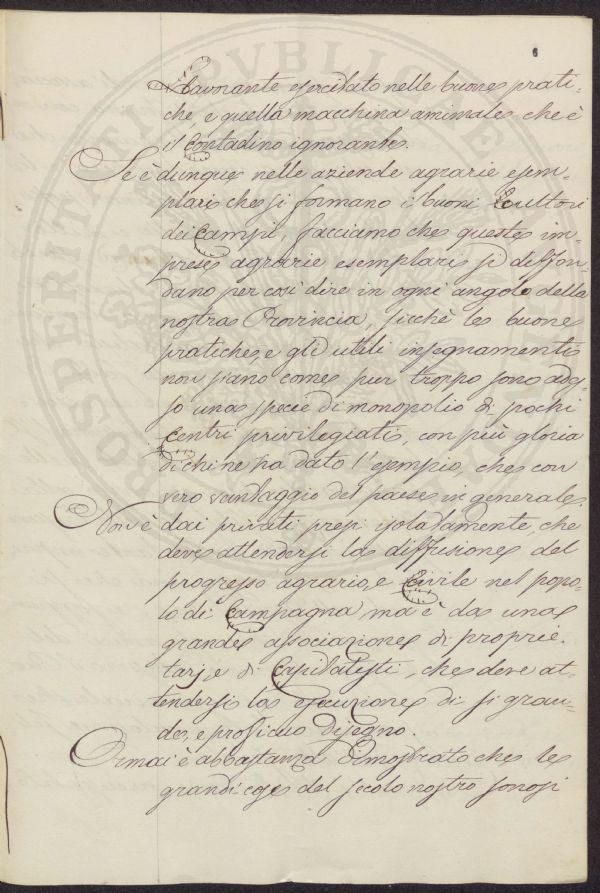 6
PVBLICAE
PROSPERITATI
Lavorante esercitato nelle buone prati-
che, e quella macchina animale che è
il Contadino ignorante.
Se è dunque nelle aziende agrarie esem-
plari che si formano i buoni Cultori
dei Campi, facciamo che queste im-
prese agrarie esemplari si diffon-
dano per così dire in ogni angolo della
nostra Provincia, sicchè le buone
pratiche, e gli utili insegnamenti
non siano come pur troppo sono ades-
so una specie di monopolio di pochi
Centri privilegiati, con più gloria
di chi ne ha dato l'esempio, che con
vero vantaggio del paese in generale.
Non è dai privati presi isolatamente, che
deve attendersi la diffusione del
progresso agrario, e Civile nel popo-
lo di Campagna, ma è da una
grande associazione di proprie-
tarj, e di Capitalisti, che deve at-
tendersi la esecuzione di sì gran-
de, e proficuo disegno.
Ormai è abbastanza dimostrato che le
grandi cose del secolo nostro sonosi